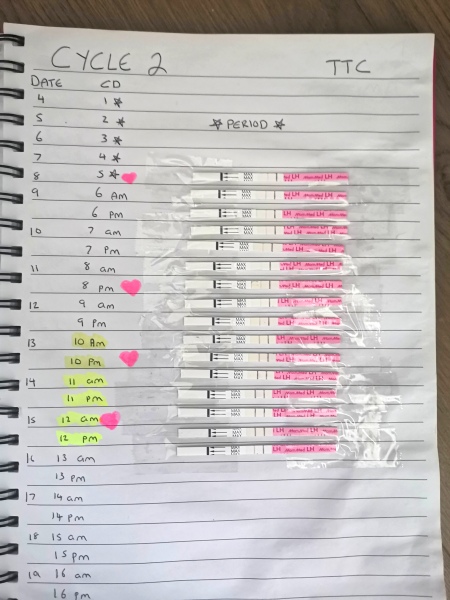 CYCLE 2 TTC
DATE CD
4 1 ★
5 2 ★ ★ PERIOD ★
6 3 ★
7 4 ★
8 5 ★ MAX LH
9 6 Am MAX LH
6 pm MAX LH
10 7 am MAX LH
7 pm MAX LH
11 8 am MAX LH
8 pm MAX LH
12 9 am MAX LH
9 pm MAX LH
13 10 Am MAX LH
10 pm MAX LH
14 11 am MAX LH
11 pm MAX LH
15 12 am MAX LH
12 pm MAX LH
16 13 am MAX LH
13 pm
17 14 am
14 pm
18 15 am
15 pm
19 16 am
16 pm